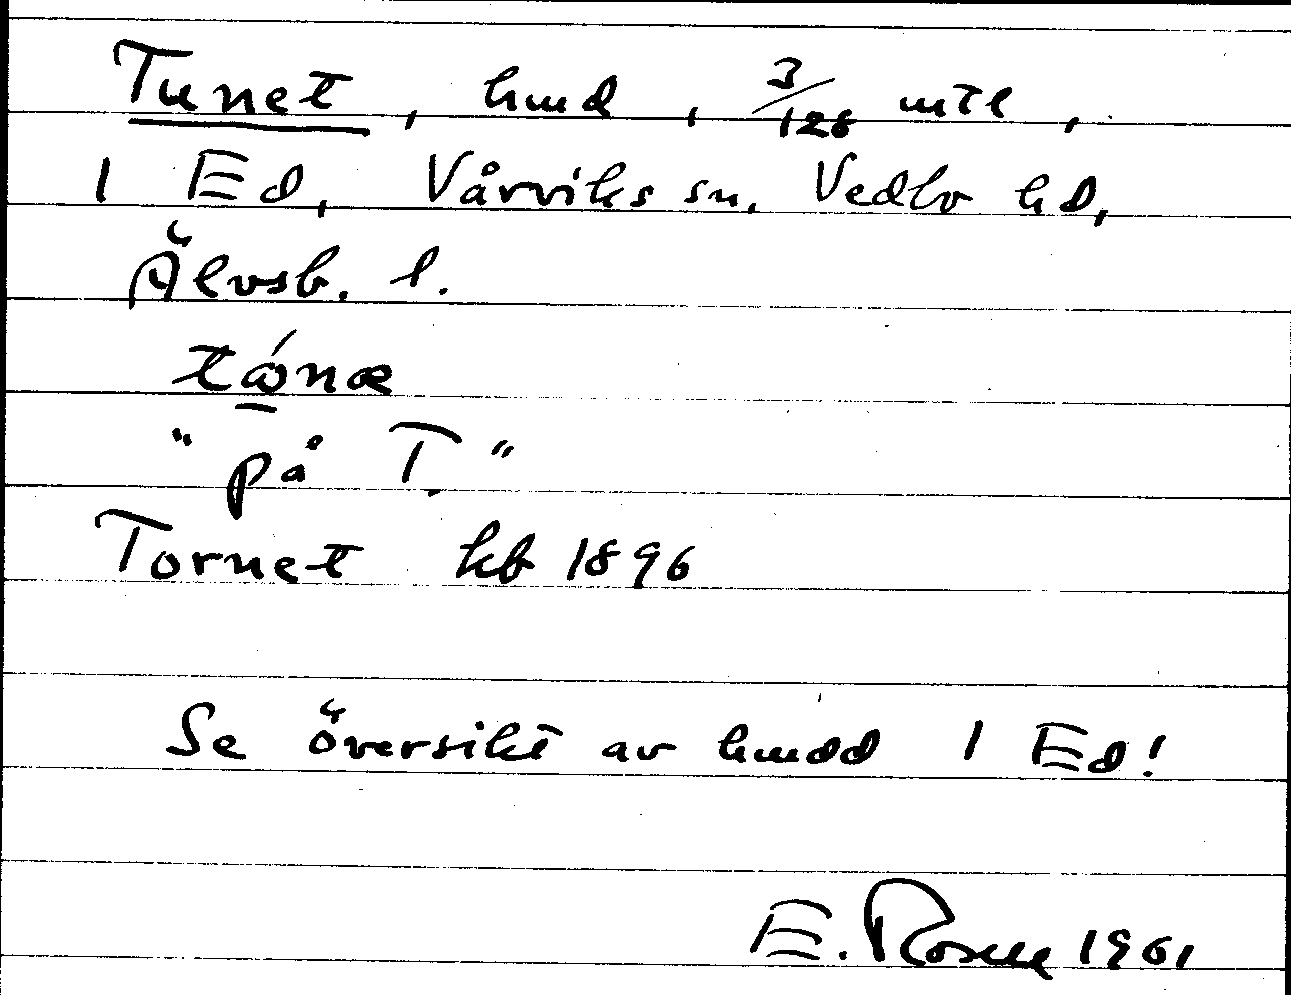 Tunet, hmd, 3/128 mtl,
1 Ed, Vårviks sn. Vedbo hd,
Älvsb. l.
"på T."
Tornet kb 1896
Se översikt av hmdd 1 Ed!
E. Rosell 1961